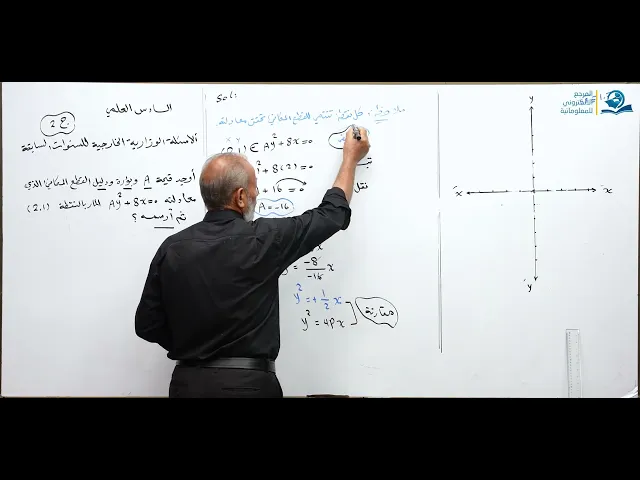 السادس العلمي
ج 2
الأسئلة الوزارية الخارجية للسنوات السابقة
أوجد قيمة A وبؤرة ودليل القطع المكافئ الذي
معادلته Ay²+8x=0 المار بالنقطة (2,1)
ثم أرسمه؟
Sol:
كل نقطة تنتمي للقطع المكافئ تحقق معادلته
x y
(2,1) ∈ Ay²+8x=0
² + 8(2) = 0
+ 16 = 0
نقل
A = -16
x
= -8/-16 x
y² = +1/2 x
y² = 4Px
مقارنة
y
x
x
y
المرجع
الالكتروني
للمعلوماتية